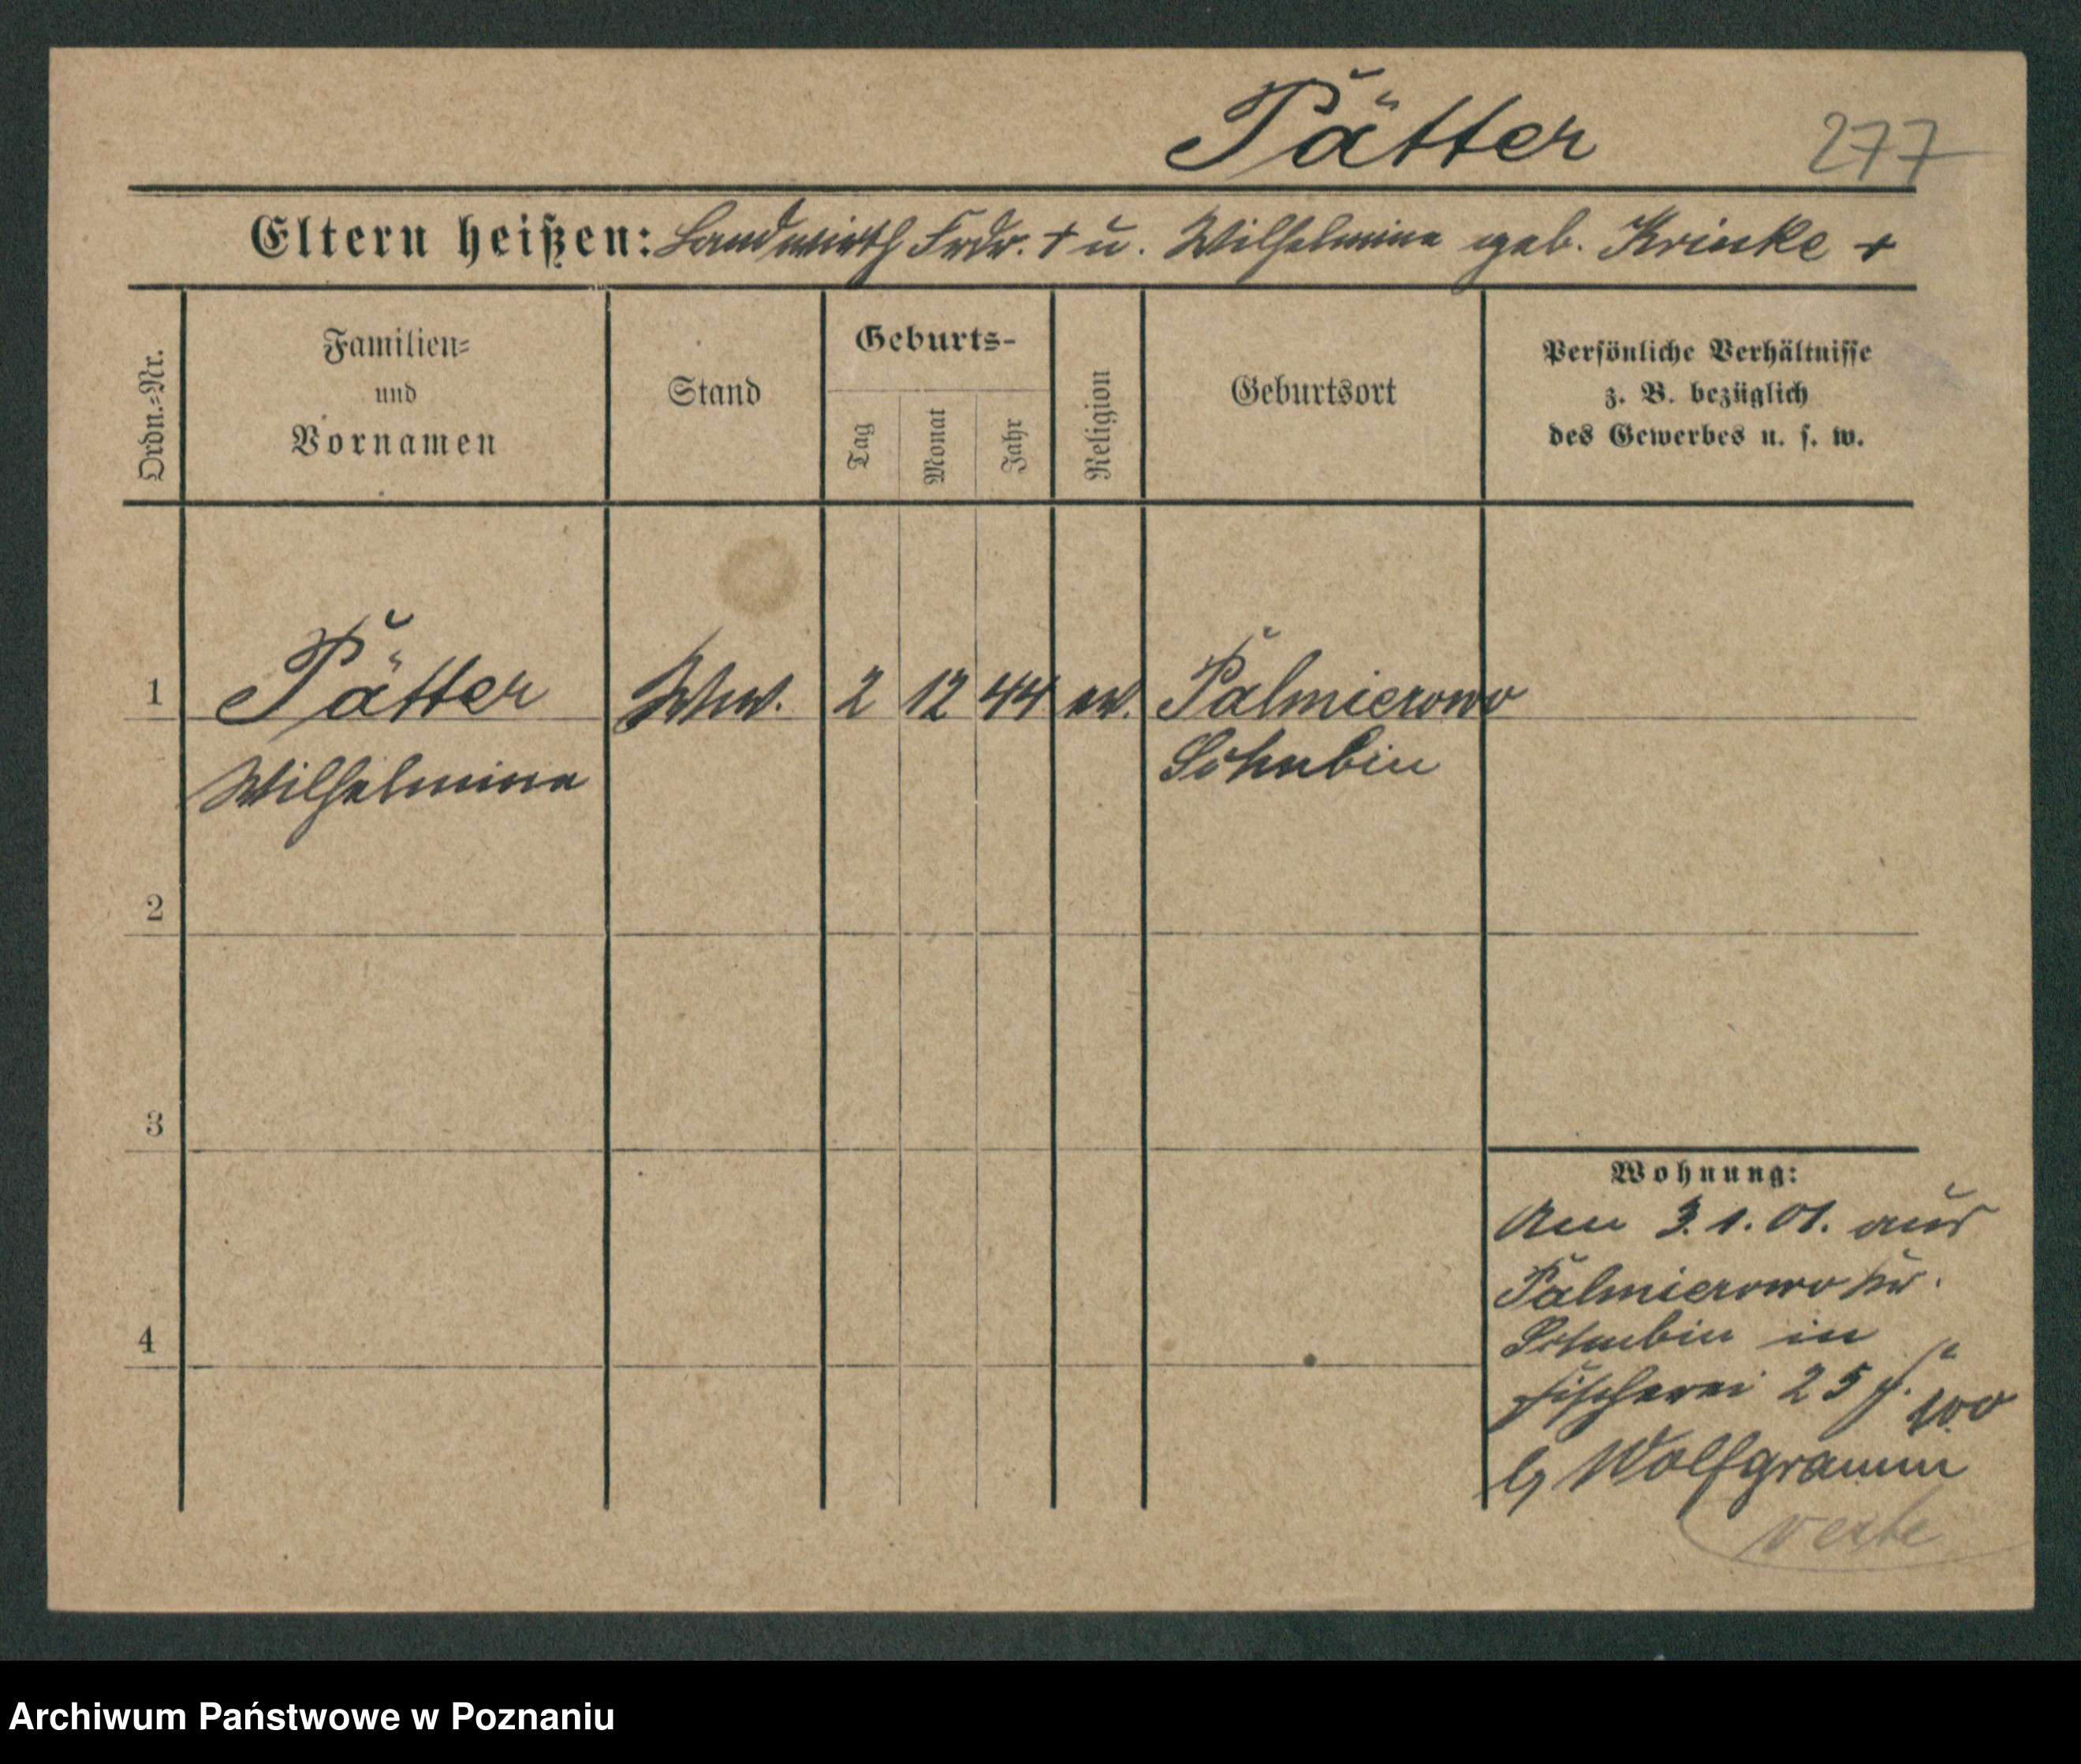 Pätter 277
Eltern heißen: Landwirth Frdr. + u. Wilhelmine geb. Krinke +
Ordn.-Nr.
Familien-
und
Vornamen
Stand
Geburts-
Tag
Monat
Jahr
Religion
Geburtsort
Persönliche Verhältnisse
z. B. bezüglich
des Gewerbes u. s. w.
1 Pätter Ww. 2 12 44 ev. Palmierowo
Wilhelmine Schubin
2
3
4
Wohnung:
Am 3.1.01. aus
Palmierowo Kr.
Schubin in
Fischerei 25
b/ Wolfgramm
verte
Archiwum Państwowe w Poznaniu